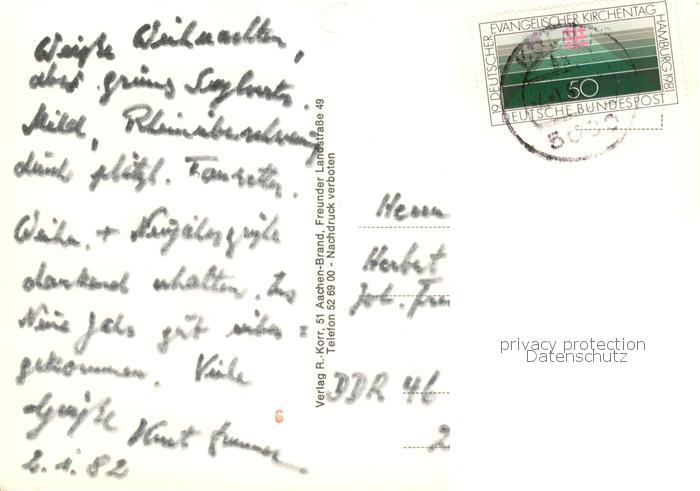 Weiße Weihnachten,
aber grünes Sylvester.
Mild, Rheinüberschwemmung
durch plötzl. Tauwetter.
Weihn. + Neujahrsgrüße
dankend erhalten. Ins
Neue Jahr gut rüber
gekommen. Viele
Grüße Kurt
2.1.82
Verlag R.-Korr, 51 Aachen-Brand, Freunder Landstraße 49
Telefon 52 69 00 - Nachdruck verboten
6
19. DEUTSCHER EVANGELISCHER KIRCHENTAG HAMBURG 1981
50
DEUTSCHE BUNDESPOST
Herrn
Herbert
Joh.
DDR 46
privacy protection
Datenschutz